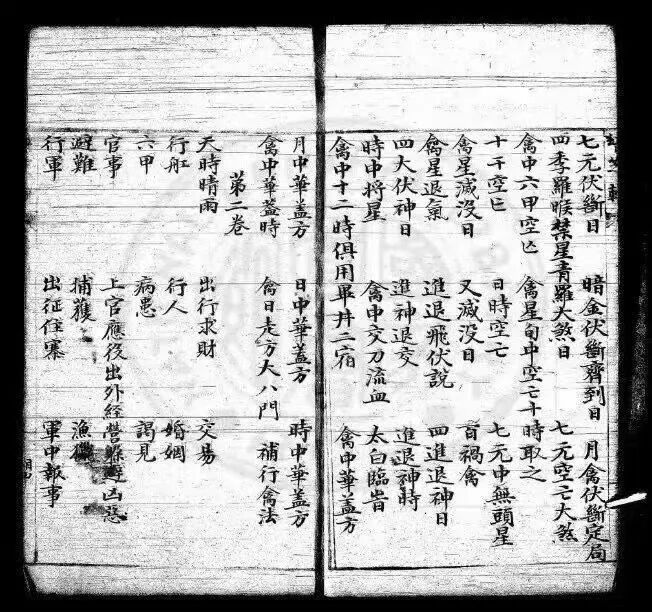 七元伏斷日　暗金伏斷齊到日　月禽伏斷定局
四季羅睺焚星青羅大煞日　七元空亡大煞
禽中六甲空亡　禽星旬中空亡十時取之
十干空亡　日時空亡　七元中無頭星
禽星滅没日　又滅没日　百禍禽
禽星退氣　進退飛伏說　四進退神日
四大伏神日　進神退交　進退神時
時中将星　禽中交刀流血　太白臨
禽中十二時俱用畢井二宿　禽中華盖方
月中華盖方　日中華盖方　時中華盖方
禽中華盖時　禽日走方大八門　補行禽法
第二卷
天時晴雨　出行求財　交易
行舡　行人　婚姻
六甲　病患　謁見
官事　上官應役出外經營躲避凶惡
避難　捕獲　漁獵
行軍　出征住寨　軍中報事